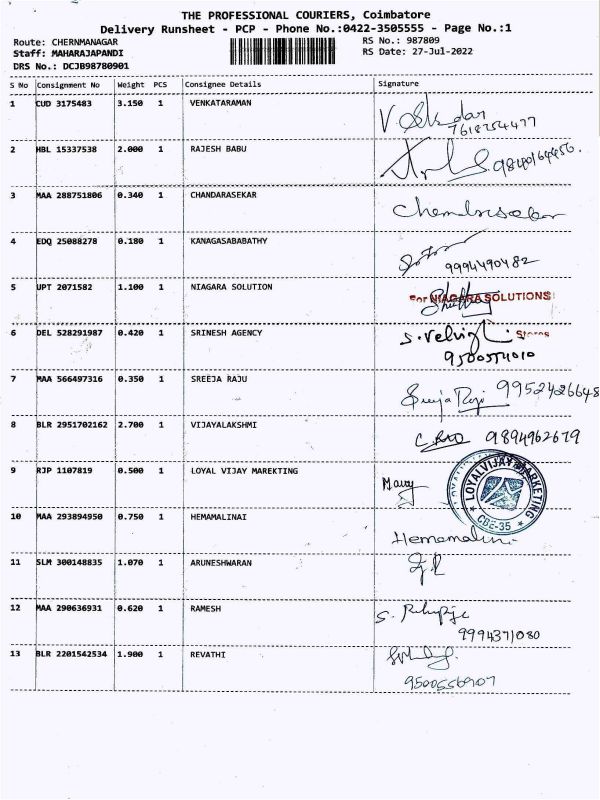 THE PROFESSIONAL COURIERS, Coimbatore
Delivery Runsheet - PCP - Phone No.:0422-3505555 - Page No.:1
Route: CHERNMANAGAR RS No.: 987809
Staff: MAHARAJAPANDI RS Date: 27-Jul-2022
DRS No.: DCJB98780901
S No Consignment No Weight PCS Consignee Details Signature
1 CUD 3175483 3.150 1 VENKATARAMAN
7618254477
2 HBL 15337538 2.000 1 RAJESH BABU 9840164456.
3 MAA 288751806 0.340 1 CHANDARASEKAR Chandrasekar
4 EDQ 25088278 0.180 1 KANAGASABABATHY
9994490482
5 UPT 2071582 1.100 1 NIAGARA SOLUTION For NIAGARA SOLUTIONS
6 DEL 528291987 0.420 1 SRINESH AGENCY Stores
9500574010
7 MAA 566497316 0.350 1 SREEJA RAJU 9952426648
8 BLR 2951702162 2.700 1 VIJAYALAKSHMI 9894962679
9 RJP 1107819 0.500 1 LOYAL VIJAY MAREKTING LOYALVIJAY MARKETING CBE-35
10 MAA 293894950 0.750 1 HEMAMALINAI Hemamalini
11 SLM 300148835 1.070 1 ARUNESHWARAN
12 MAA 290636931 0.620 1 RAMESH
9994371080
13 BLR 2201542534 1.900 1 REVATHI
9500556907